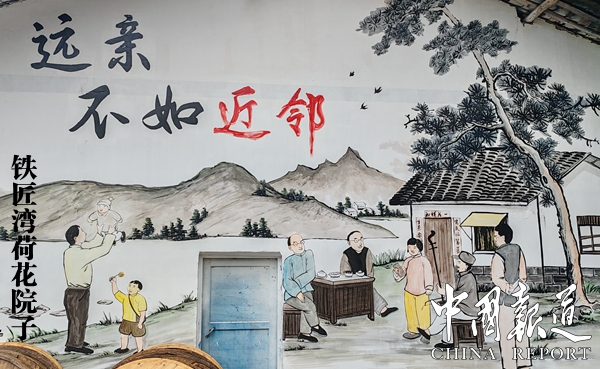 远亲
不如近邻
铁匠湾荷花院子
中国报道
CHINA REPORT